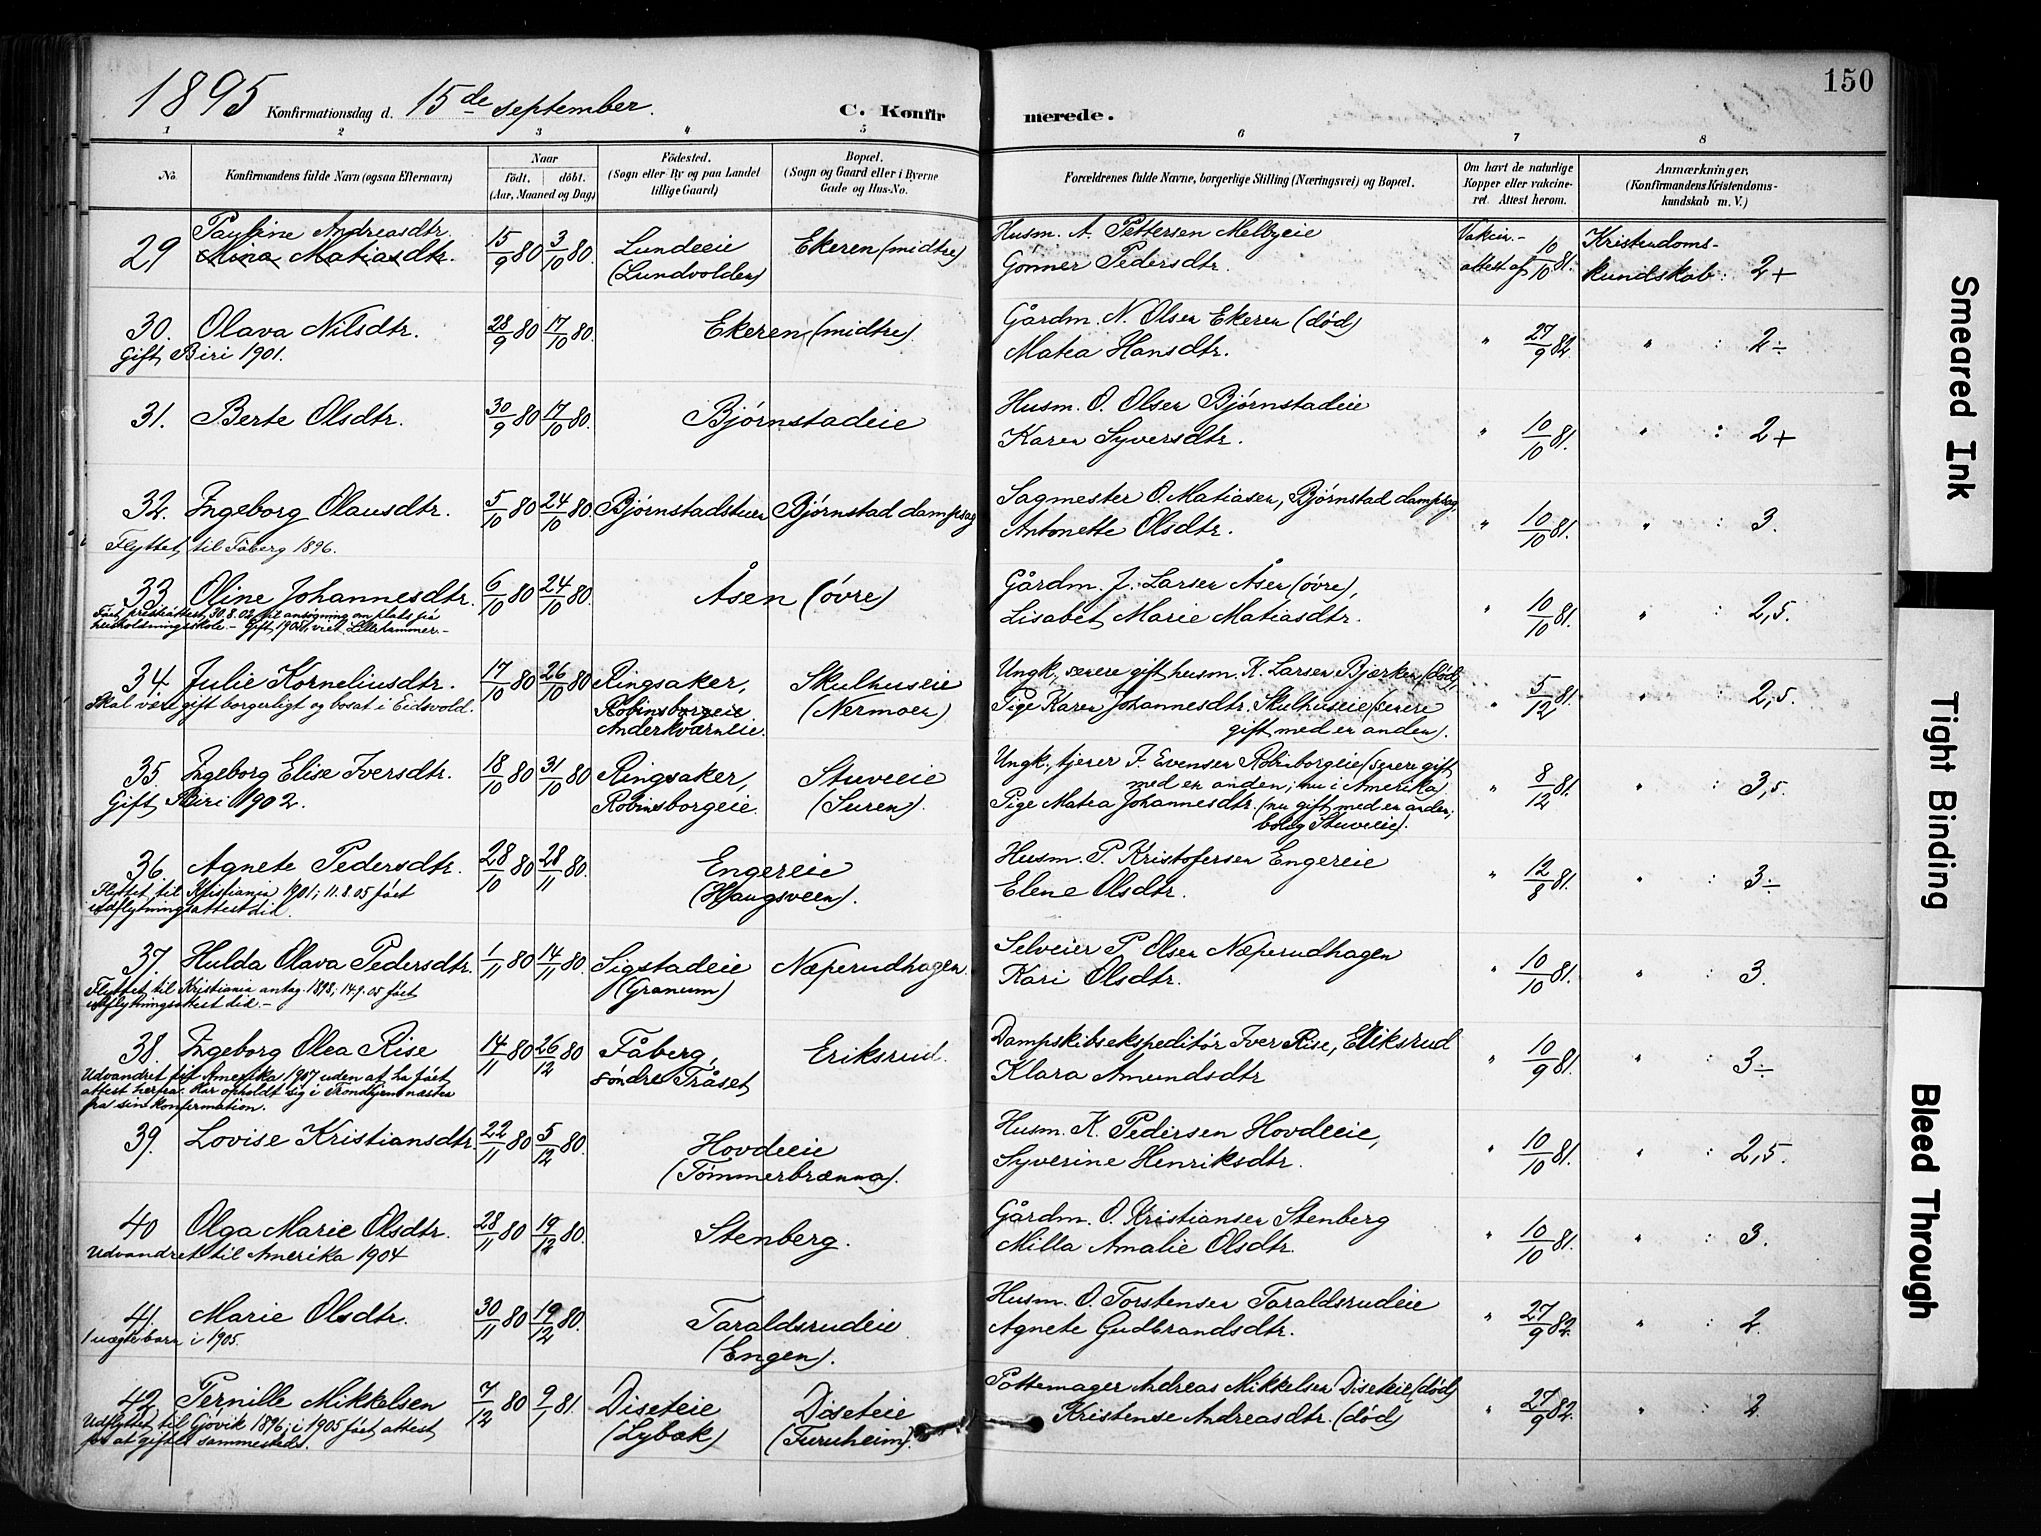 150
1895 Konfirmationsdag d. 15de september. C. Konfirmerede.
1 2 3 4 5 6 7 8
No. Konfirmandens fulde Navn (ogsaa Efternavn) Naar født. døbt. (Aar, Maaned og Dag) Fødested. (Sogn eller By og paa Landet tillige Gaard) Bopæl. (Sogn og Gaard eller i Byerne Gade og Hus-No. Forældrenes fulde Navne, borgerlige Stilling (Næringsvei) og Bopæl. Om havt de naturlige Kopper eller vakcineret. Attest herom. Anmærkninger. (Konfirmandens Kristendomskundskab m. V.)
Pauline Andreasdtr. Husm. A. Pettersen Melbyeie Vakcin.- Kristendoms-
29 Mina Matiasdtr. 15/9 80 3/10 80. Lundeeie Ekeren (midtre) Gønner Pedersdtr. attest af 10/10 81. kundskab: 2+
(Lundvolden)
30. Olava Nilsdtr. 28/9 80 17/10 80. Ekeren (midtre). Gårdm. N. Olsen Ekeren (død)
Gift, Biri 1901. Matea Hansdtr. " 27/9 82. " : 2÷
31. Berte Olsdtr. 30/9 80 17/10 80. Bjørnstadeie Husm. O. Olsen Bjørnstadeie
Karen Syversdtr. " 10/10 81. " : 2+
32. Ingeborg Olausdtr. 5/10 80 24/10 80. Bjørnstadstuen Bjørnstad dampsag Sagmester O. Matiasen, Bjørnstad dampsag
Flyttet til Fåberg 1896. Antonette Olsdtr. " 10/10 81. " : 3.
33 Oline Johannesdtr. 6/10 80 24/10 80. Åsen (øvre) Gårdm. J. Larsen Åsen (øvre),
Fået præsteattest 30.8.02 til ansøgning om plads på
husholdningsskole. - Gift, 1905, viet Lillehammer.- Lisabet Marie Matiasdtr. " 10/10 81. " : 2,5.
34 Julie Korneliusdtr. 17/10 80 26/10 80 Ringsaker, Skulhuseie Ungk., senere gift husm. K. Larsen Bjerker (død),
Skal være gift borgerligt og bosat i Eidsvold. Robinsborgeie (Nermoen) Pige Karen Johannesdtr. Skulhuseie (senere " 5/12 81. " : 2,5.
Anderkværneie. gift med en anden).
35 Ingeborg Elise Iversdtr. 18/10 80 31/10 80 Ringsaker, Stuveeie Ungk., tjener I. Evensen Robinborgeie (senere gift
Gift, Biri 1902. Robinsborgeie. (Suren). med en anden; nu i Amerika) " 8/12 81. " : 3,5.
Pige Matea Johannesdtr. (nu gift med en anden;
bolig Stuveeie).
36. Agnete Pedersdtr. 28/10 80 28/11 80. Engereie Husm. P. Kristofersen Engereie
Flyttet til Kristiania 1901; 11.8.05 fået
udflytningsattest did. (Haugsveen). Elene Olsdtr. " 12/8 81. " : 3÷
37. Hulda Olava Pedersdtr. 1/11 80 14/11 80. Sigstadeie Næperudhagen. Selveier P. Olsen Næperudhagen
Flyttet til Kristiania antag. 1898; 14.9.05 fået
udflytningsattest did.- (Granum) Kari Olsdtr. " 10/10 81. " : 3.
38. Ingeborg Olea Rise 14/11 80 26/12 80 Fåberg, Eriksrud. Dampskibsekspeditør Iver Rise, Eriksrud
Udvandret til Amerika 1907 uden at ha fået søndre Tråset Klara Amundsdtr " 10/9 81. " 3÷
attest herfra. Har opholdt sig i Trondhjem næsten
fra sin konfirmation.
39. Lovise Kristiansdtr. 22/11 80 5/12 80. Hovdeeie Husm. K. Pedersen Hovdeeie,
(Tømmerbrænna). Syverine Henriksdtr. " 10/10 81. " : 2,5.
40 Olga Marie Olsdtr. 28/11 80 19/12 80. Stenberg. Gårdm. O. Kristiansen Stenberg
Udvandret til Amerika 1904 Milla Amalie Olsdtr. " 10/10 81. " : 3.
41. Marie Olsdtr. 30/11 80 19/12 80. Taraldsrudeie Husm. O. Torstensen Taraldsrudeie
1 uægte barn i 1905. (Engen). Agnete Gudbrandsdtr. " 27/9 82. " : 2.
42. Pernille Mikkelsen 7/12 80 9/1 81. Diseteie Diseteie Pottemager Andreas Mikkelsen Diseteie (død)
Udflyttet til Gjøvik 1896; i 1905 fået attest (Lybæk) (Furuheim). Kristense Andreasdtr. (død) " 27/9 82. " : 2.
for at giftes sammesteds.
Smeared Ink
Tight Binding
Bleed Through